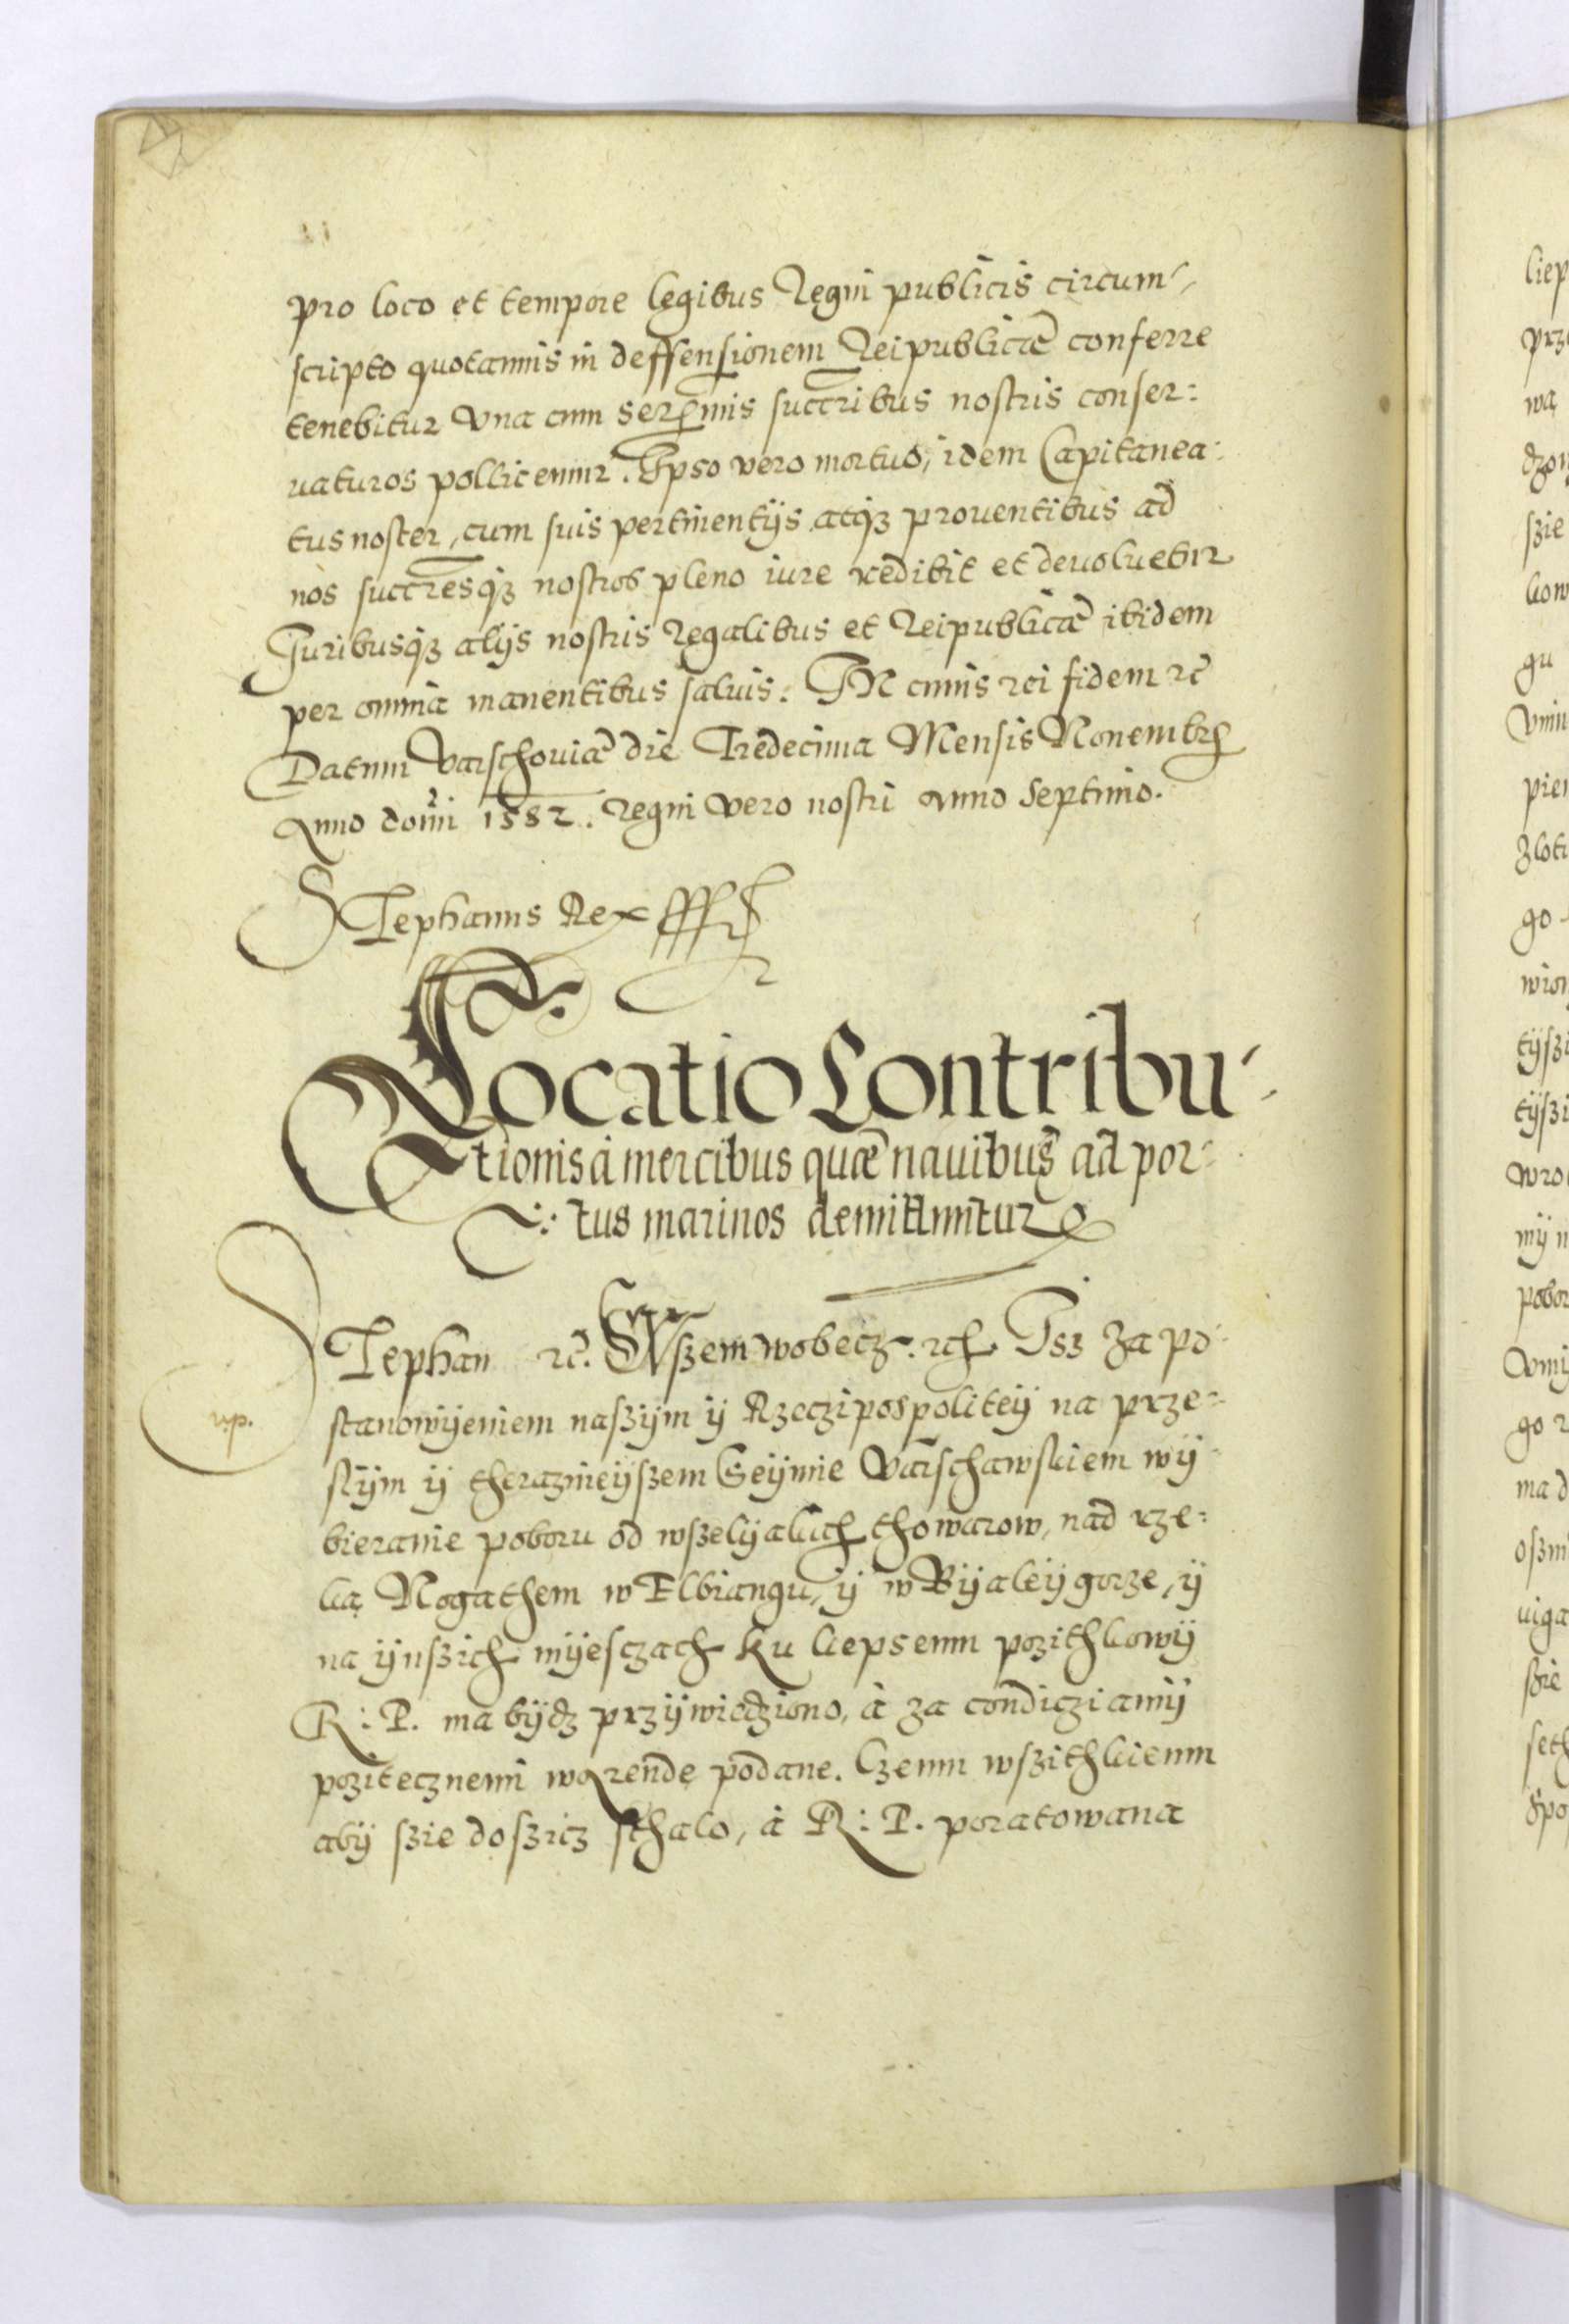 pro loco et tempore legibus Regni publicis circum-
scripto quotannis in deffensionem Reipublicæ conferre
tenebitur Vna cum serenmis succribus nostris conser:
uaturos pollicemur. Ipso vero mortuo, idem Capitanea:
tus noster, cum suis pertinentijs atq3 prouentibus ad
nos succresq3 nostros pleno iure redibit et deuoluetur
Iuribusq3 alijs nostris Regalibus et Reipublicæ ibidem
per omnia manentibus saluis. IN cuius rei fidem rc̃
Datum Varschouiæ die Tredecima Mensis Nouembrs
Anno domi 1582. Regni Vero nostri Anno Septimo.
STephanus Rex
Locatio Contribu-
tionis à mercibus quæ nauibus ad por-
tus marinos demittuntur
STephan rc̃. Wszem wobecz. rch Isz Za po-
stanowÿeniem naszÿm ÿ Rzeczipospolitey na prze-
słÿm ÿ therazniejszem Seÿmie Varschawskiem wÿ-
bieranie poboru od wszelÿakich thowarow, nad rze:
ką Nogathem w Elbiangu, ÿ w Bÿaleÿ gorze, ÿ
na ÿnszich mÿesczach ku liepsemu pozithkowÿ
R: P. ma bÿdz przÿwiedziono, à za condicziamÿ
pozitecznemi w Arendę podane. Czemu wszithkiemu
abÿ szie doszicz sthalo, à R: P. poratowana